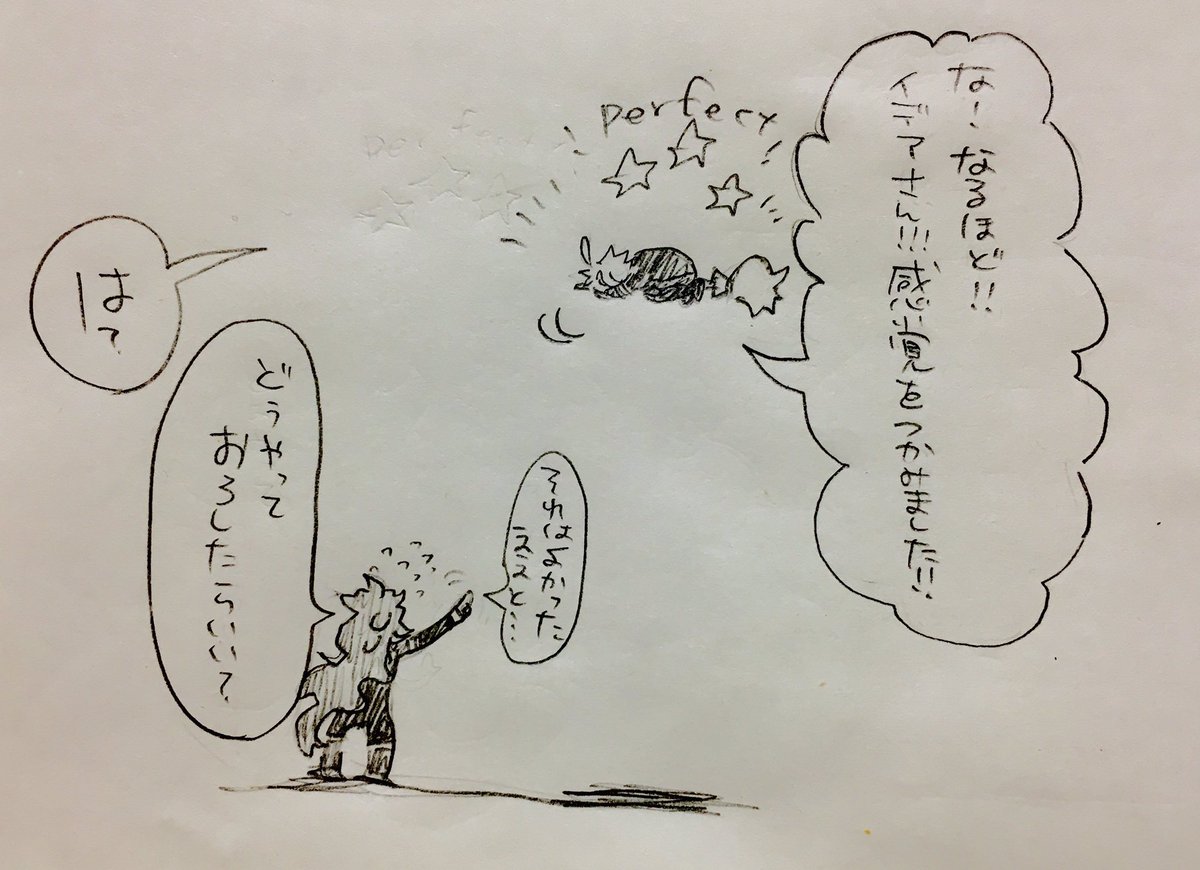 な、なるほど!!
イデアさん!!!感覚をつかみました!!
perfect
それはよかった
ええと…
どうやって
おろしたらいい?
は?